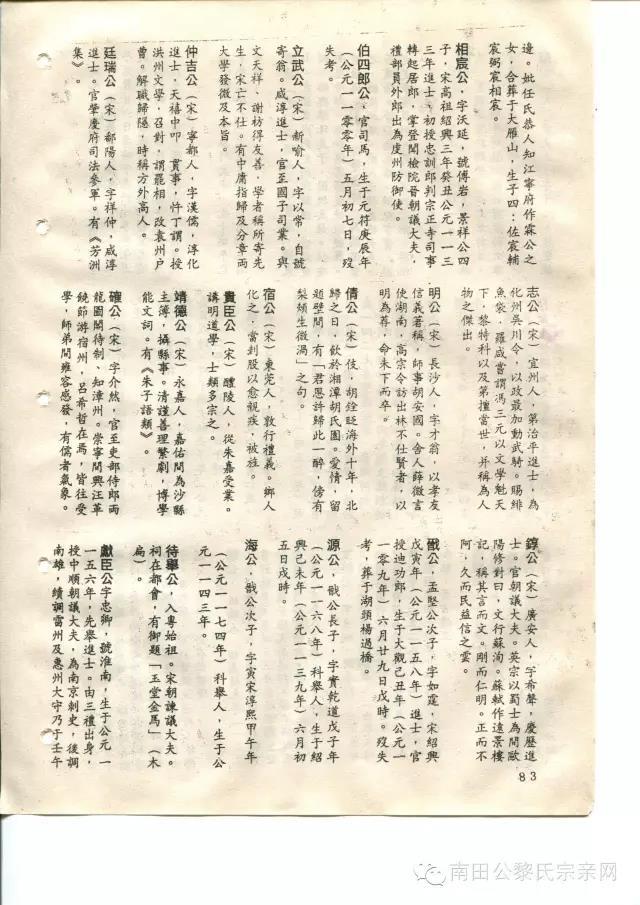 邊。妣任氏恭人知江寧府作霖公之
女，合葬于大雁山，生子四：佐宸輔
宸弼宸相宸。
相宸公，字沃延，號傅岩，景祥公四
子，宋高祖紹興三年癸丑公元一一三
三年進士，初授忠訓郎判宗正寺司事
轉起居郎，掌登聞檢院晉朝議大夫，
禮部員外郎出為虔州防御使。
伯四郎公，官司馬，生于元符庚辰年
（公元一一零零年）五月初七日，歿
失考。
立武公（宋）新喻人，字以常，自號
寄翁。咸淳進士，官至國子司業。與
文天祥、謝枋得友善，學者稱所寄先
生，宋亡不仕。有中庸指歸及分章両
大學發微及本旨。
仲吉公（宋）寧都人，字漢儒，淳化
進士，天禧中叩　貫事，忤丁謂。授
洪州文學，召對，謂罷相，改袁州户
曹。解職歸隱，時稱方外高人。
廷瑞公（宋）鄱陽人，字祥仲，咸淳
進士。官肇慶府司法參軍。有《芳洲
集》。
志公（宋）宜州人，第治平進士，為
化州吳川令，以政最加勳武騎。賜緋
魚袋，羅咸嘗謂馮三元以文學魁天
下，黎特科以及第擅當世，并稱為人
物之傑出。
明公（宋）長沙人，字才翁，以孝友
信義著稱，師事胡安國。舍人薛微言
使湖南，高宗令訪出林不仕賢者，以
明為尊，命未下而卒。
倩公（宋）伎，胡銓貶海外十年，北
歸之日，飲於湘潭胡氏園。愛情，留
題壁間，有「君恩許歸此一醉，傍有
梨頰生微渦」之句。
宿公（宋）東莞人，敦行禮義。鄉人
化之，當刲股以愈親疾，被旌。
貴臣公（宋）醴陵人，從朱嘉受業。
講明道學，士類多宗之。
靖德公（宋）永嘉人，嘉佑間為沙縣
主簿，攝縣事。清謹善理繁劇，博學
能文詞。有《朱子語類》。
確公（宋）字介然，官至吏部侍郎両
龍圖閣待制、知漳州。崇寧間與汪革
饒節游宿州，吕希哲在焉，皆往受
學，師弟問雍容感發，有儒者氣象。
錞公（宋）廣安人，字希聲，慶歷進
士。官朝議大夫。英宗以蜀士為問歐
陽修對曰，文行蘇洵。蘇軾作遠景樓
記，稱其言而文。剛而仁明。正而不
阿，久而民益信之雲。
戩公，孟堅公次子，字如霆，宋紹興
戊寅年（公元一一五八年）進士，官
授迪功郎，生于大觀己丑年（公元一
一零九年）六月廿九日戌時。歿失
考，葬于湖頭楊過橋。
源公，戩公長子，字實乾道戊子年
（公元一一六八年）科舉人，生于紹
興己未年（公元一一三九年）六月初
五日戌時。
海公，戩公次子，字寅宋淳熙甲午年
（公元一一七四年）科舉人，生于公
元一一四三年。
待舉公，入粵始祖。宋朝諫議大夫。
祠在都會，有御題「玉堂金馬」（木
扁）。
獻臣公字忠卿，號淮南，生于公元一
一五六年，先舉進士。由三禮出身，
授中順朝議大夫，為南京刺史，後調
南雄，續調雷州及惠州大守乃于壬午
83
南田公黎氏宗亲网